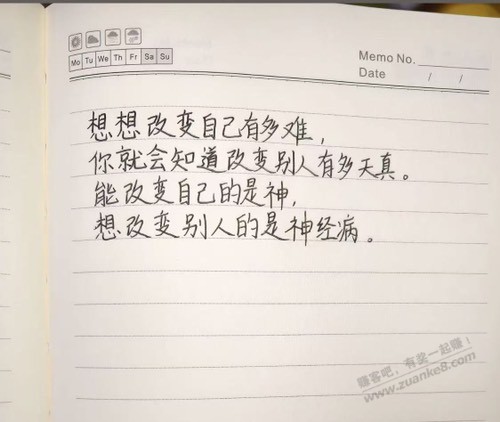 Mo Tu We Th Fr Sa Su
Memo No.
Date / /
想想改变自己有多难，
你就会知道改变别人有多天真。
能改变自己的是神，
想改变别人的是神经病。
赚客吧，有奖一起赚！
www.zuanke8.com